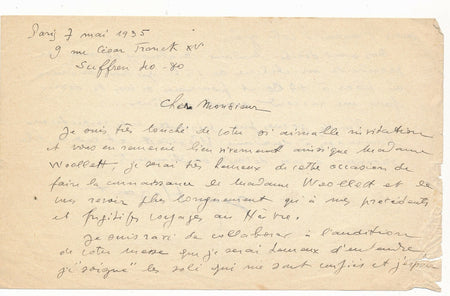 Paris 7 mai 1935
9 rue César Franck XV
Suffren 40-80
Cher Monsieur
Je suis très touché de votre si aimable invitation
et vous en remercie bien vivement ainsi que Madame
Woollett, je serai très heureux de cette occasion de
faire la connaissance de Madame Woollett et de
vous revoir plus longuement qu'à mes précédents
et fugitifs voyages au Hâvre.
Je suis ravi de collaborer à l'audition
de votre messe que je serai heureux d'entendre
j'ai "soigné" les soli qui me sont confiés et j'espère